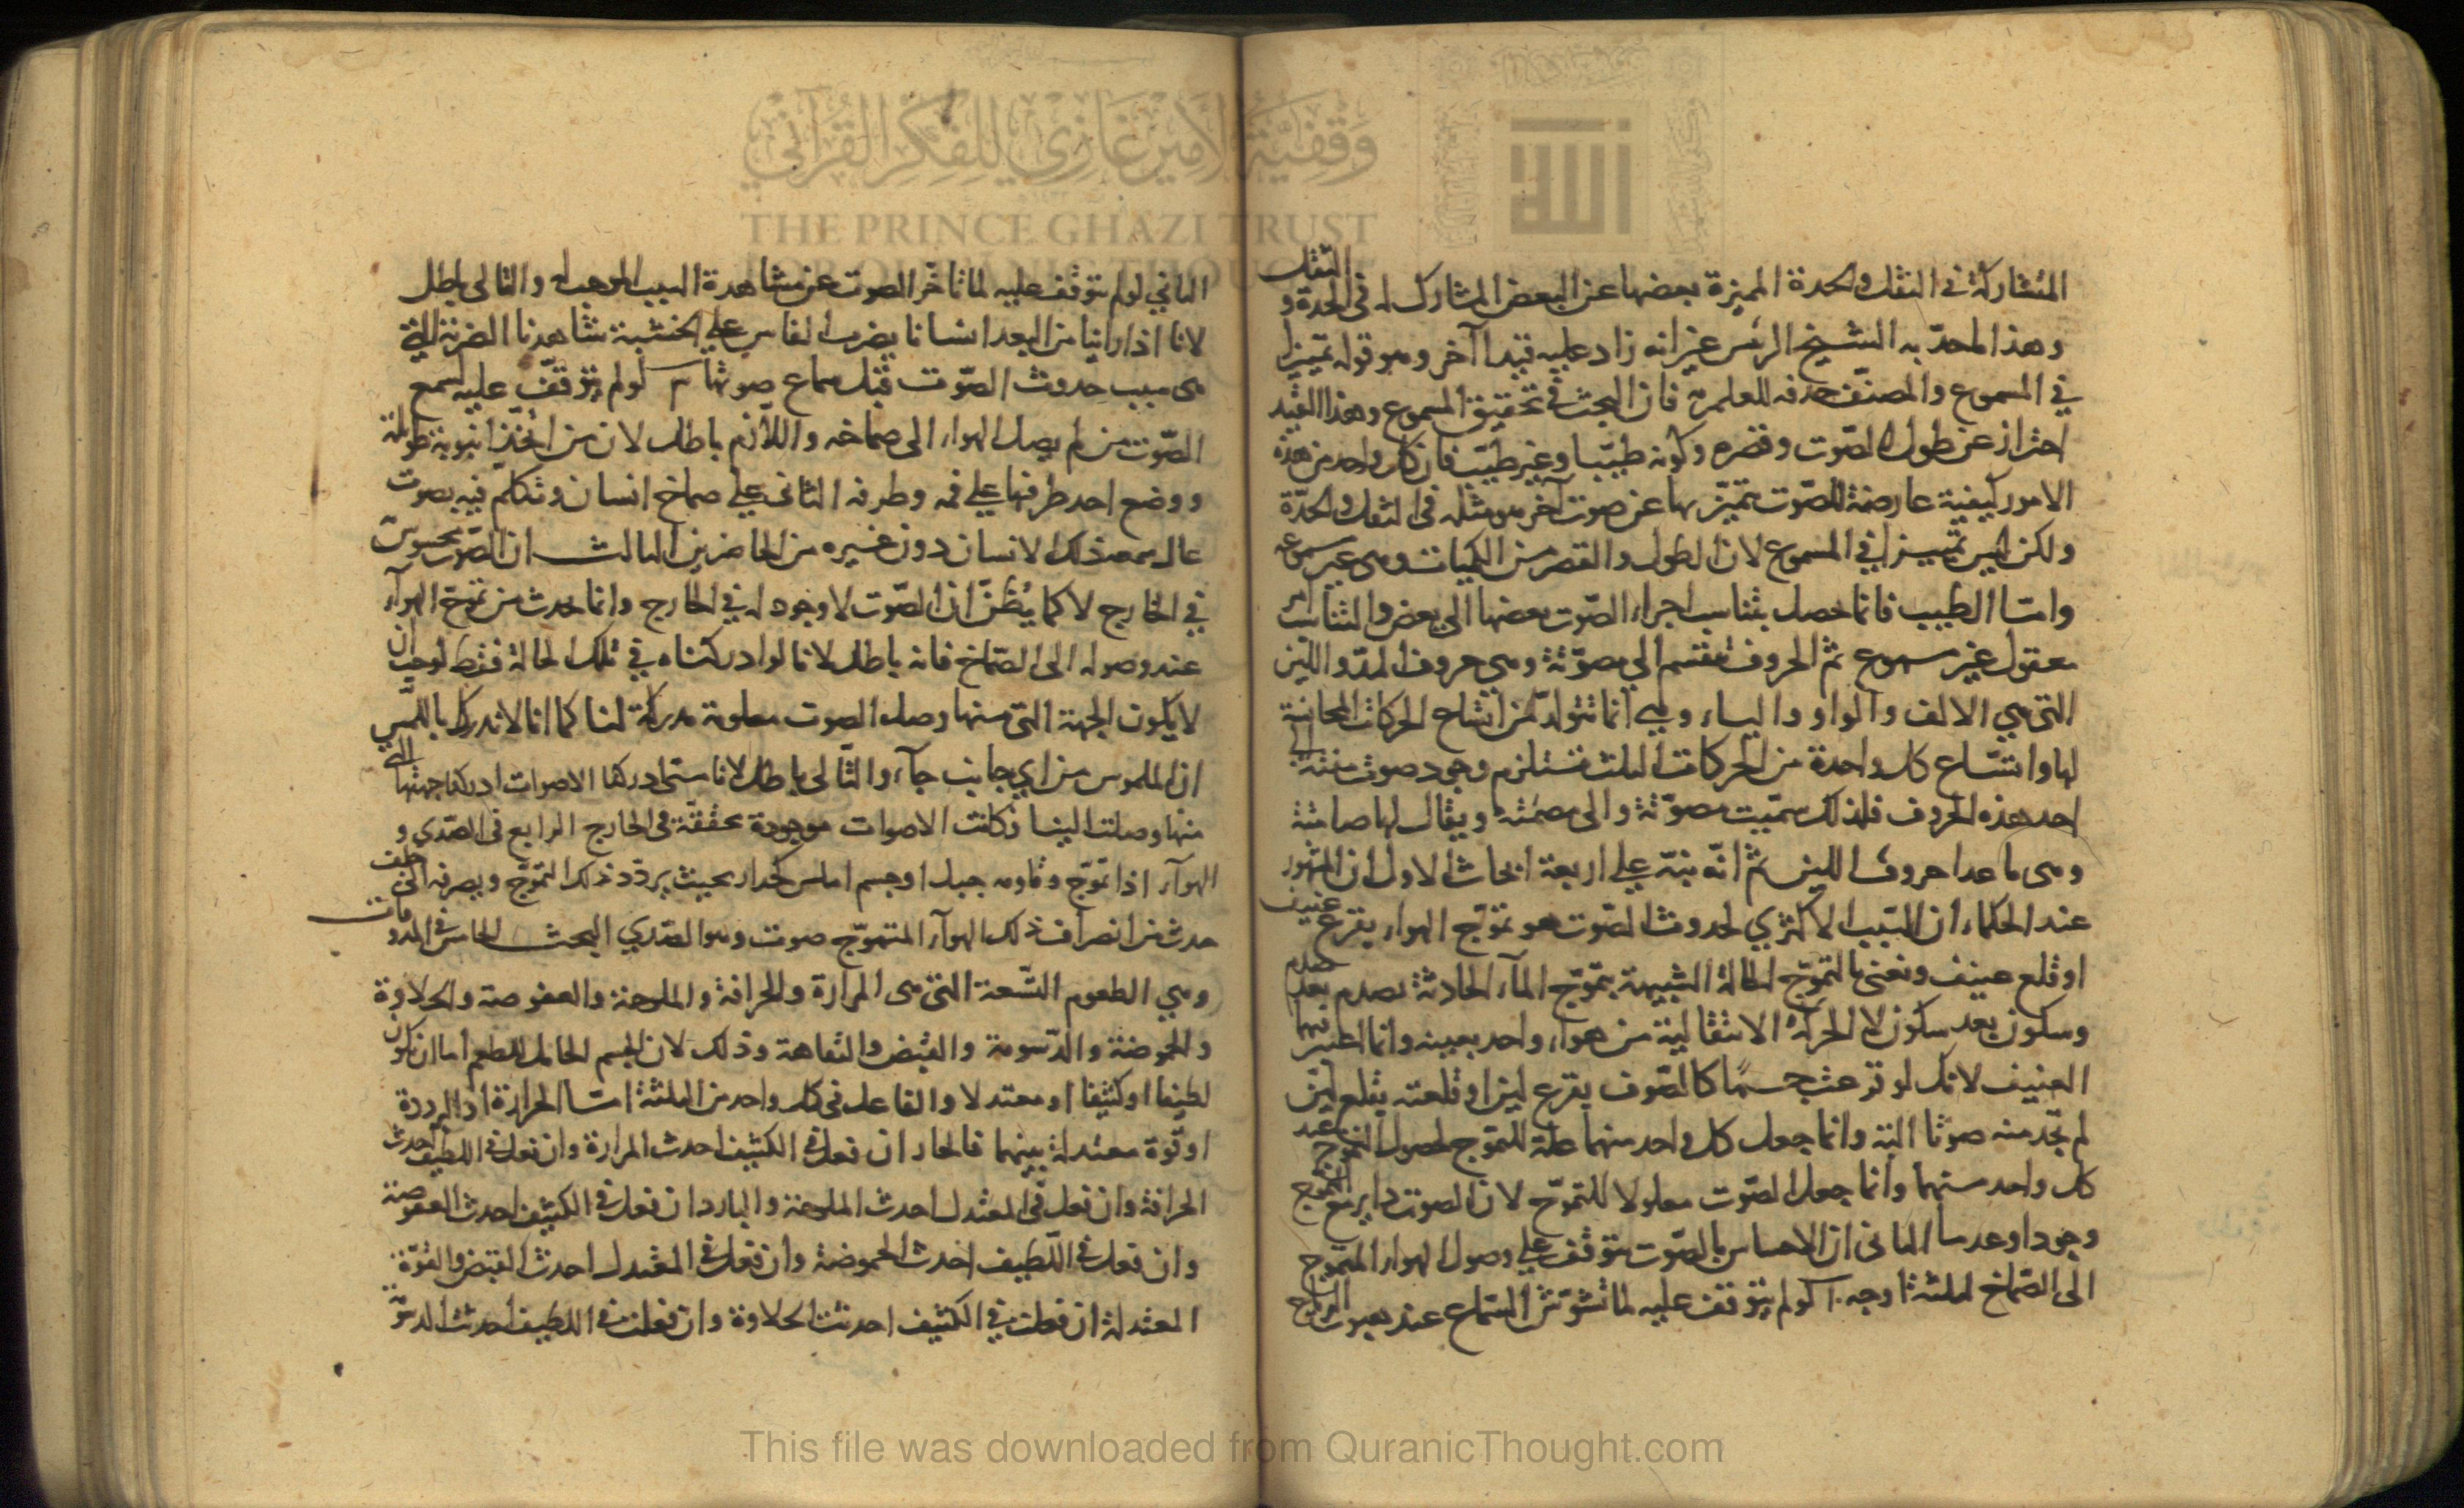 المتشاركة في الثقل والحدة المميزة بعضها عن البعض المشارك له في الحدة و الثقل
وهذا ما حد به الشيخ الرئيس غير انه زاد عليه قيدا آخر وهو قوله تميزا
في المسموع والمصنف حذفه للعلم به فان البحث في تحقيق المسموع وهذا القيد
احتراز عن طول الصوت وقصره وكونه طيبا وغير طيب فان كل واحد من هذه
الامور كيفية عارضة للصوت يتميز بها عن صوت آخر هو مثله في الثقل والحدة
ولكن ليس تمييزا في المسموع لان الطول والقصر من الكميات وهي غير مسموعة
واما الطيب فانما يحصل بتناسب اجزاء الصوت بعضها الى بعض والتناسب امر
معقول غير مسموع ثم الحروف تنقسم الى مصوتة وهي حروف المد واللين
التي هي الالف والواو والياء وهي انما تتولد من اشباع الحركات المجانسة
لها واشباع كل واحدة من الحركات الثلث تستلزم وجود صوت
احد هذه الحروف فلذلك سميت مصوتة والى مصمتة ويقال لها صامتة
وهي ما عدا حروف اللين ثم انه نبه على اربعة ابحاث الاول ان المشهور
عند الحكماء ان السبب الاكثري لحدوث الصوت هو تموج الهواء بقرع عنيف
او قلع عنيف ونعني بالتموج الحالة الشبيهة بتموج الماء الحادثة بصدم بعد صدم
وسكون بعد سكون لا الحركة الانتقالية من هواء واحد بعينه وانما اعتبر فيهما
العنيف لانك لو قرعت جسما كالصوف بقرع لين او قلعته بقلع لين
لم تجد منه صوتا البتة وانما جعل كل واحد منهما علة للتموج لحصول التموج عند
كل واحد منهما وانما جعل الصوت معلولا للتموج لان الصوت داير مع التموج
وجودا وعدما الثاني ان الاحساس بالصوت يتوقف على وصول الهواء المتموج
الى الصماخ لثلثة اوجه ا لو لم يتوقف عليه لما تشوش السماع عند هبوب الرياح
الثاني لو لم يتوقف عليه لما تأخر الصوت عن مشاهدة السبب الموجب له والتالي باطل
لانا اذا راينا من البعد انسانا يضرب الفاس على الخشبة شاهدنا الضربة التي
هي سبب حدوث الصوت قبل سماع صوتها لو لم يتوقف عليه لسمع
الصوت من لم يصل الهواء الى صماخه واللازم باطل لان من اتخذ انبوبة طويلة
ووضع احد طرفيها على فمه وطرفه الثاني على صماخ انسان وتكلم فيه بصوت
عال سمعه ذلك الانسان دون غيره من الحاضرين الثالث ان الصوت محسوس
في الخارج لا كما يظن ان الصوت لا وجود له في الخارج وانما يحدث من تموج الهواء
عند وصوله الى الصماخ فانه باطل لانا لو ادركناه في تلك الحالة فقط لوجب ان
لا يكون الجهة التي منها وصل الصوت معلومة مدركة لنا كما انا لا ندرك باللمس
ان الملموس من اي جانب جاء والتالي باطل لانا متى ادركنا الاصوات ادركنا جهتها التي
منها وصلت الينا فكانت الاصوات موجودة محققة في الخارج الرابع في الصدي و
الهواء اذا تموج وقاومه جبل او جسم املس كجدار بحيث يردد ذلك التموج ويصرفه الى خلف
حدث من انصراف ذلك الهواء المتموج صوت وهو الصدي البحث الخامس في المذوقات
وهي الطعوم التسعة التي هي المرارة والحرافة والملوحة والعفوصة والحلاوة
والحموضة والدسومة والقبض والتفاهة وذلك لان الجسم الحامل للطعم اما ان يكون
لطيفا او كثيفا او معتدلا والفاعل في كل واحد من الثلثة اما الحرارة او البرودة
او قوة معتدلة بينهما فالحار ان فعل في الكثيف احدث المرارة وان فعل في اللطيف احدث
الحرافة وان فعل في المعتدل احدث الملوحة والبارد ان فعل في الكثيف احدث العفوصة
وان فعل في اللطيف احدث الحموضة وان فعل في المعتدل احدث القبض والقوة
المعتدلة ان فعلت في الكثيف احدثت الحلاوة وان فعلت في اللطيف احدثت الدسو
وقفية الأمير غازي للفكر القرآني
THE PRINCE GHAZI TRUST
FOR QURANIC THOUGHT
This file was downloaded from QuranicThought.com